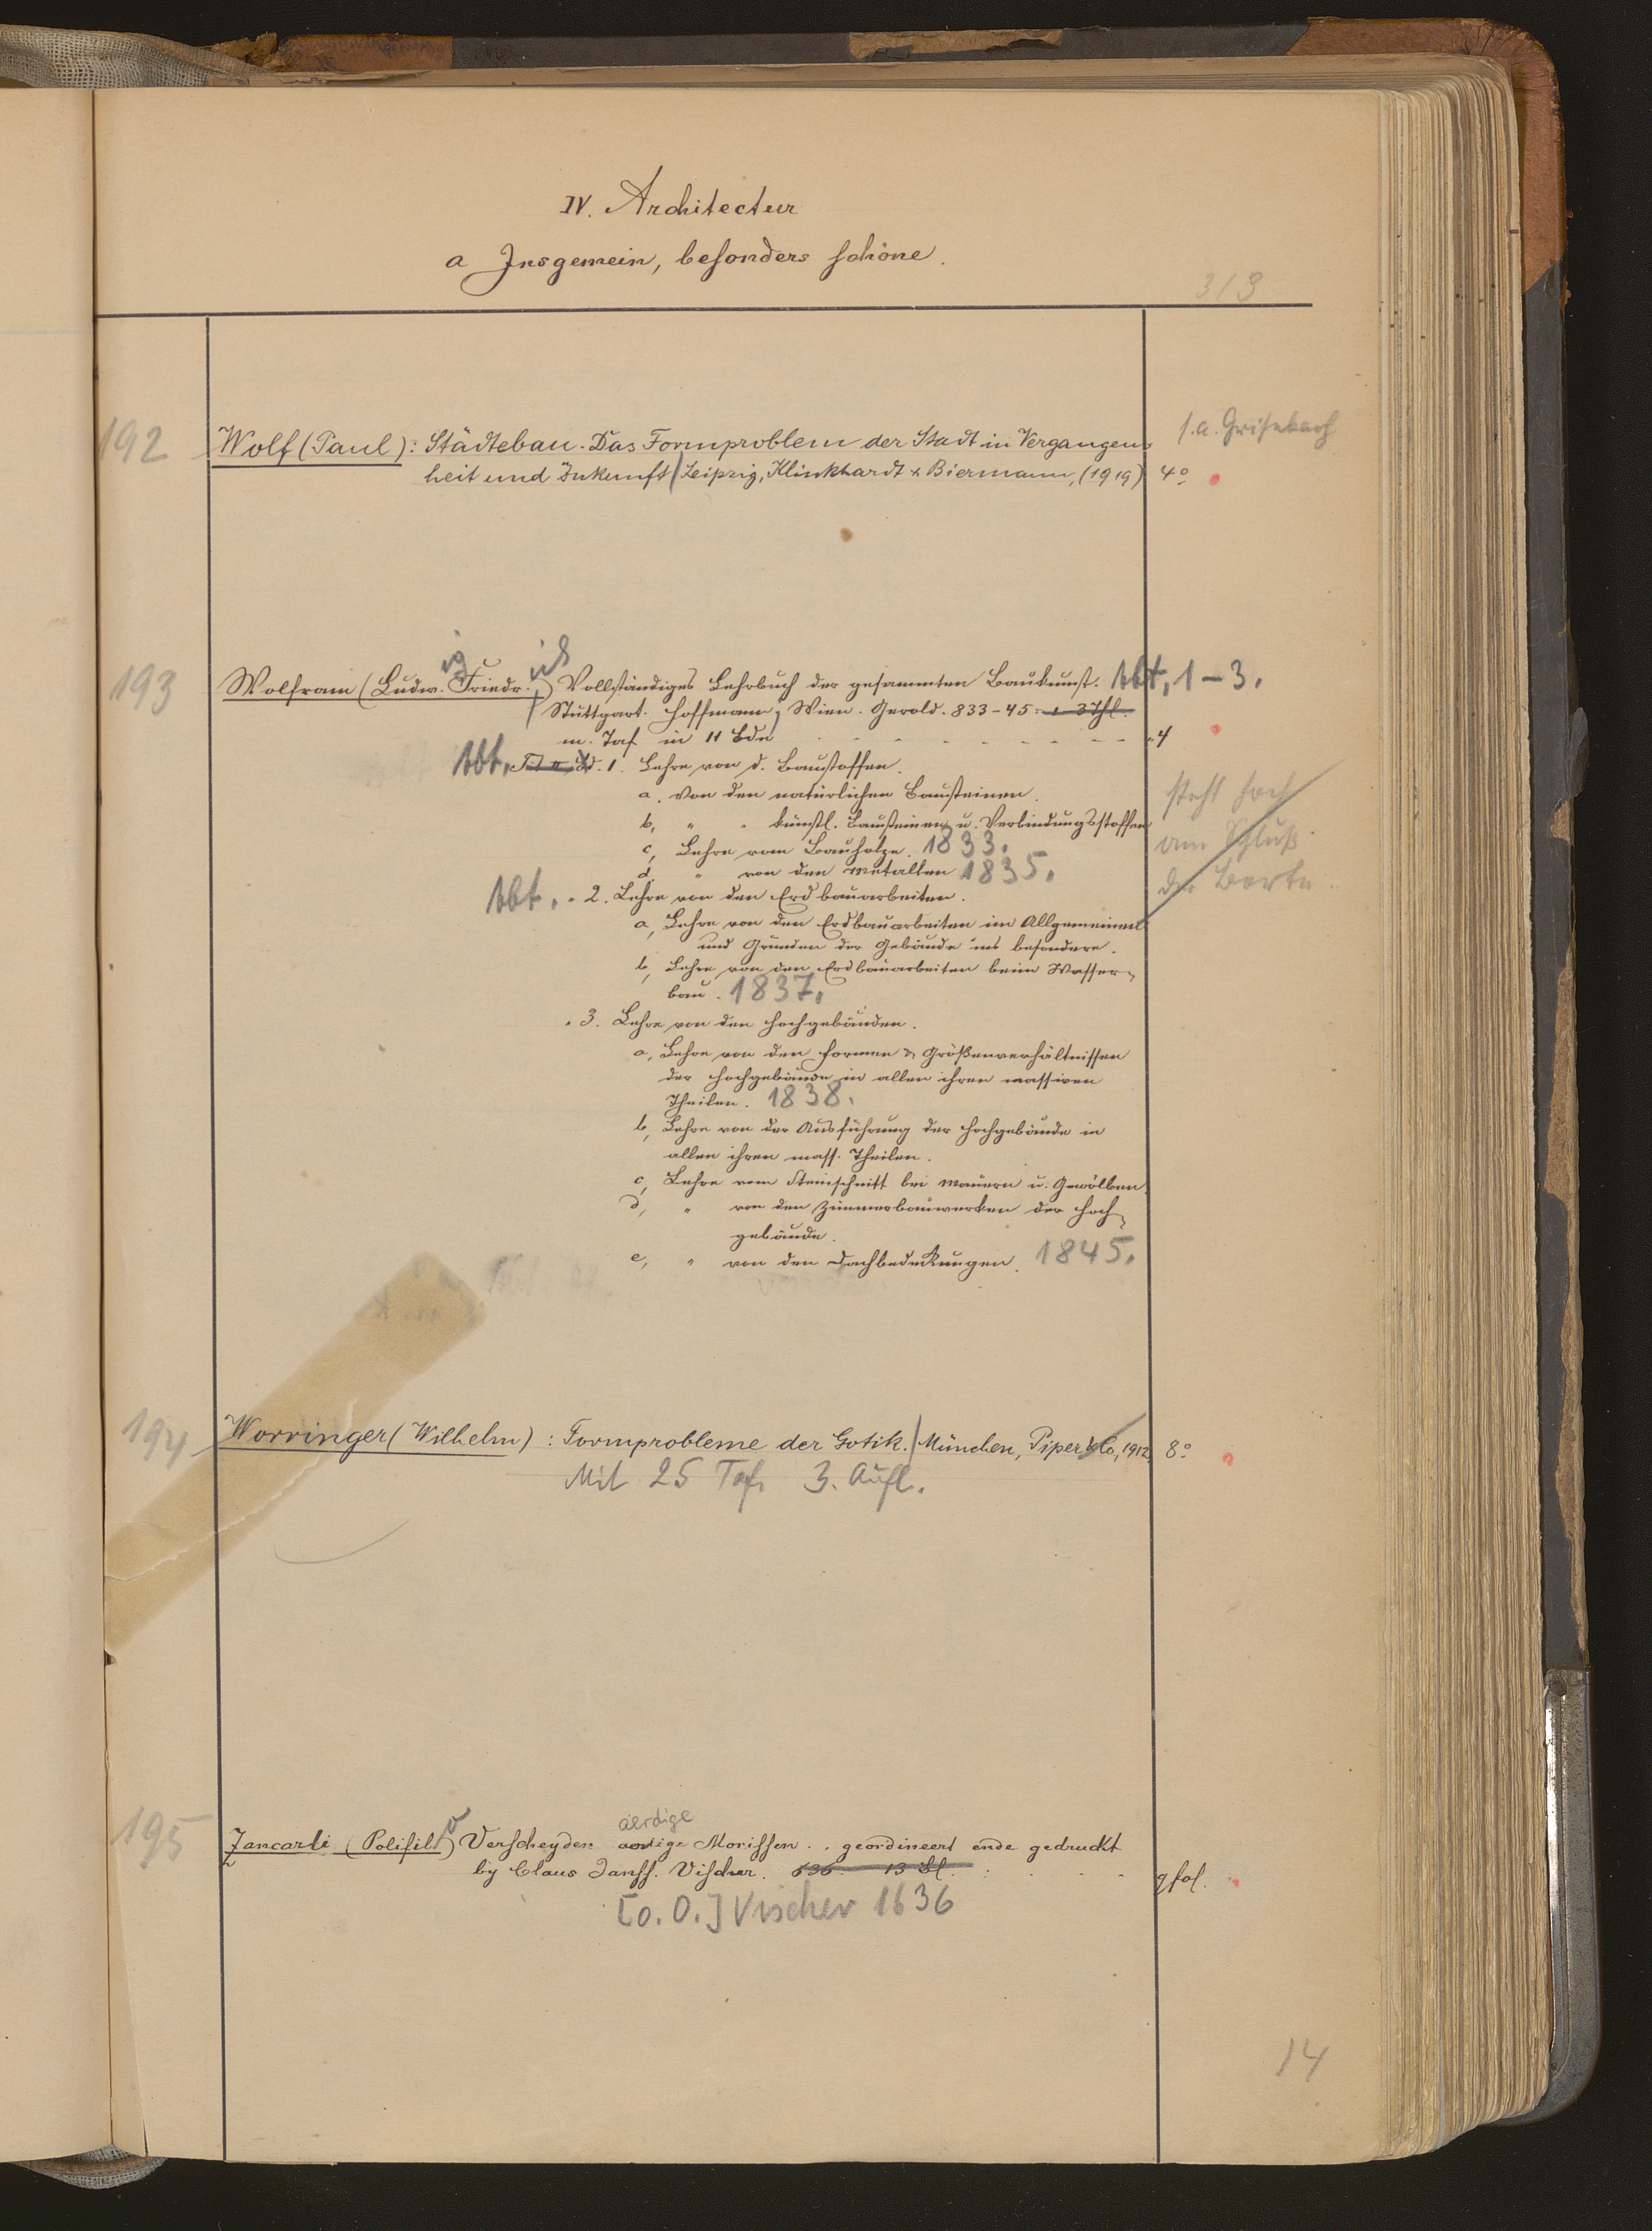 IV. Architectur
a Insgemein, besonders schöne.
313
192
Wolf (Paul): Städtebau. Das Formproblem der Stadt in Vergangen-
s. a. Grisebach
heit und Zukunft / Leipzig, Klinkhardt & Biermann, (1919)
4°
193
Wolfram (Ludw.ig Friedr.ich) Vollständiges Lehrbuch der gesammten Baukunst. Abt. 1-3.
Stuttgart. Hoffmann; Wien. Gerold. 833-45. 1-3 Thl.
m. Taf in 11 Bdn
4
Abt. Bd. 1. Lehre von d. Baustoffen.
a. Von den natürlichen Bausteinen.
steht hoch
b, " " künstl. Bausteinen u. Verbindungsstoffen
am Schluß
c, Lehre vom Bauholze. 1833.
d. " von den Metallen 1835.
der Borte.
Abt. " 2. Lehre von den Erdbauarbeiten.
a, Lehre von den Erdbauarbeiten im Allgemeinen
und Gründen der Gebäude ins besondere.
b, Lehre von den Erdbauarbeiten beim Wasser-
bau. 1837.
" 3. Lehre von den Hochgebäuden.
a, Lehre von den Formen & Größenverhältnissen
der Hochgebäude in allen ihren massiven
Theilen. 1838.
b, Lehre von der Ausführung der Hochgebäude in
allen ihren mass. Theilen.
c, Lehre vom Steinschnitt bei Mauern u. Gewölben.
d, " von den Zimmerbauwerken der Hoch-
gebäude.
e, " von den Dachbedeckungen. 1845.
194
Worringer (Wilhelm): Formprobleme der Gotik. / München, Piper & Co, 1912
8°
Mit 25 Taf. 3. Aufl.
195
aerdige
Zancarli (Polifilo) Verscheyden aerdige Morissen . . geordineert ende gedruckt
by Claus Janss. Vischer. 636. 13 Bl.
qfol.
[o. O.] Vischer 1636
14